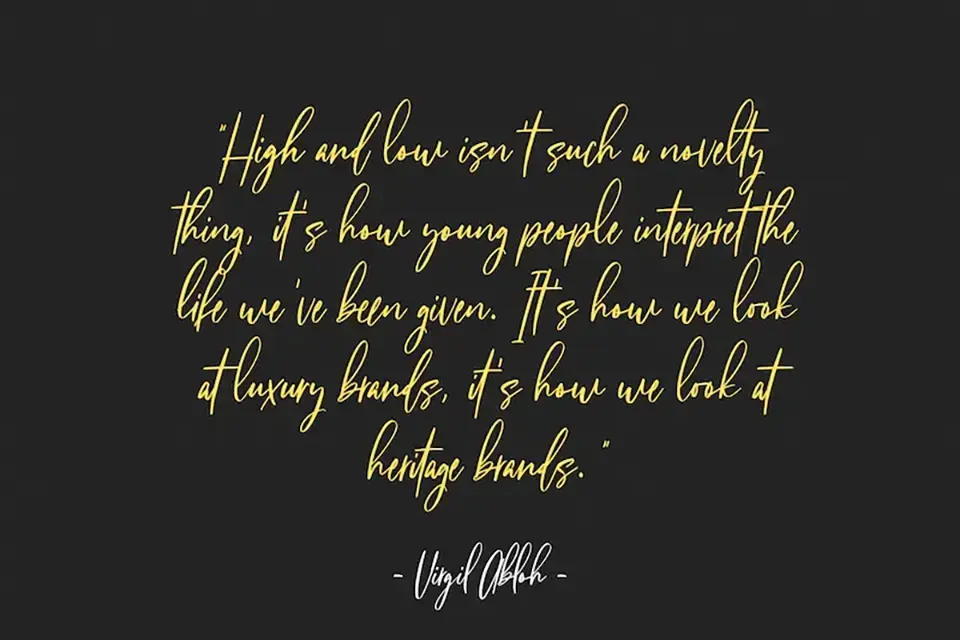 "High and low isn't such a novelty
thing, it's how young people interpret the
life we've been given. It's how we look
at luxury brands, it's how we look at
heritage brands. "
- Virgil Abloh -